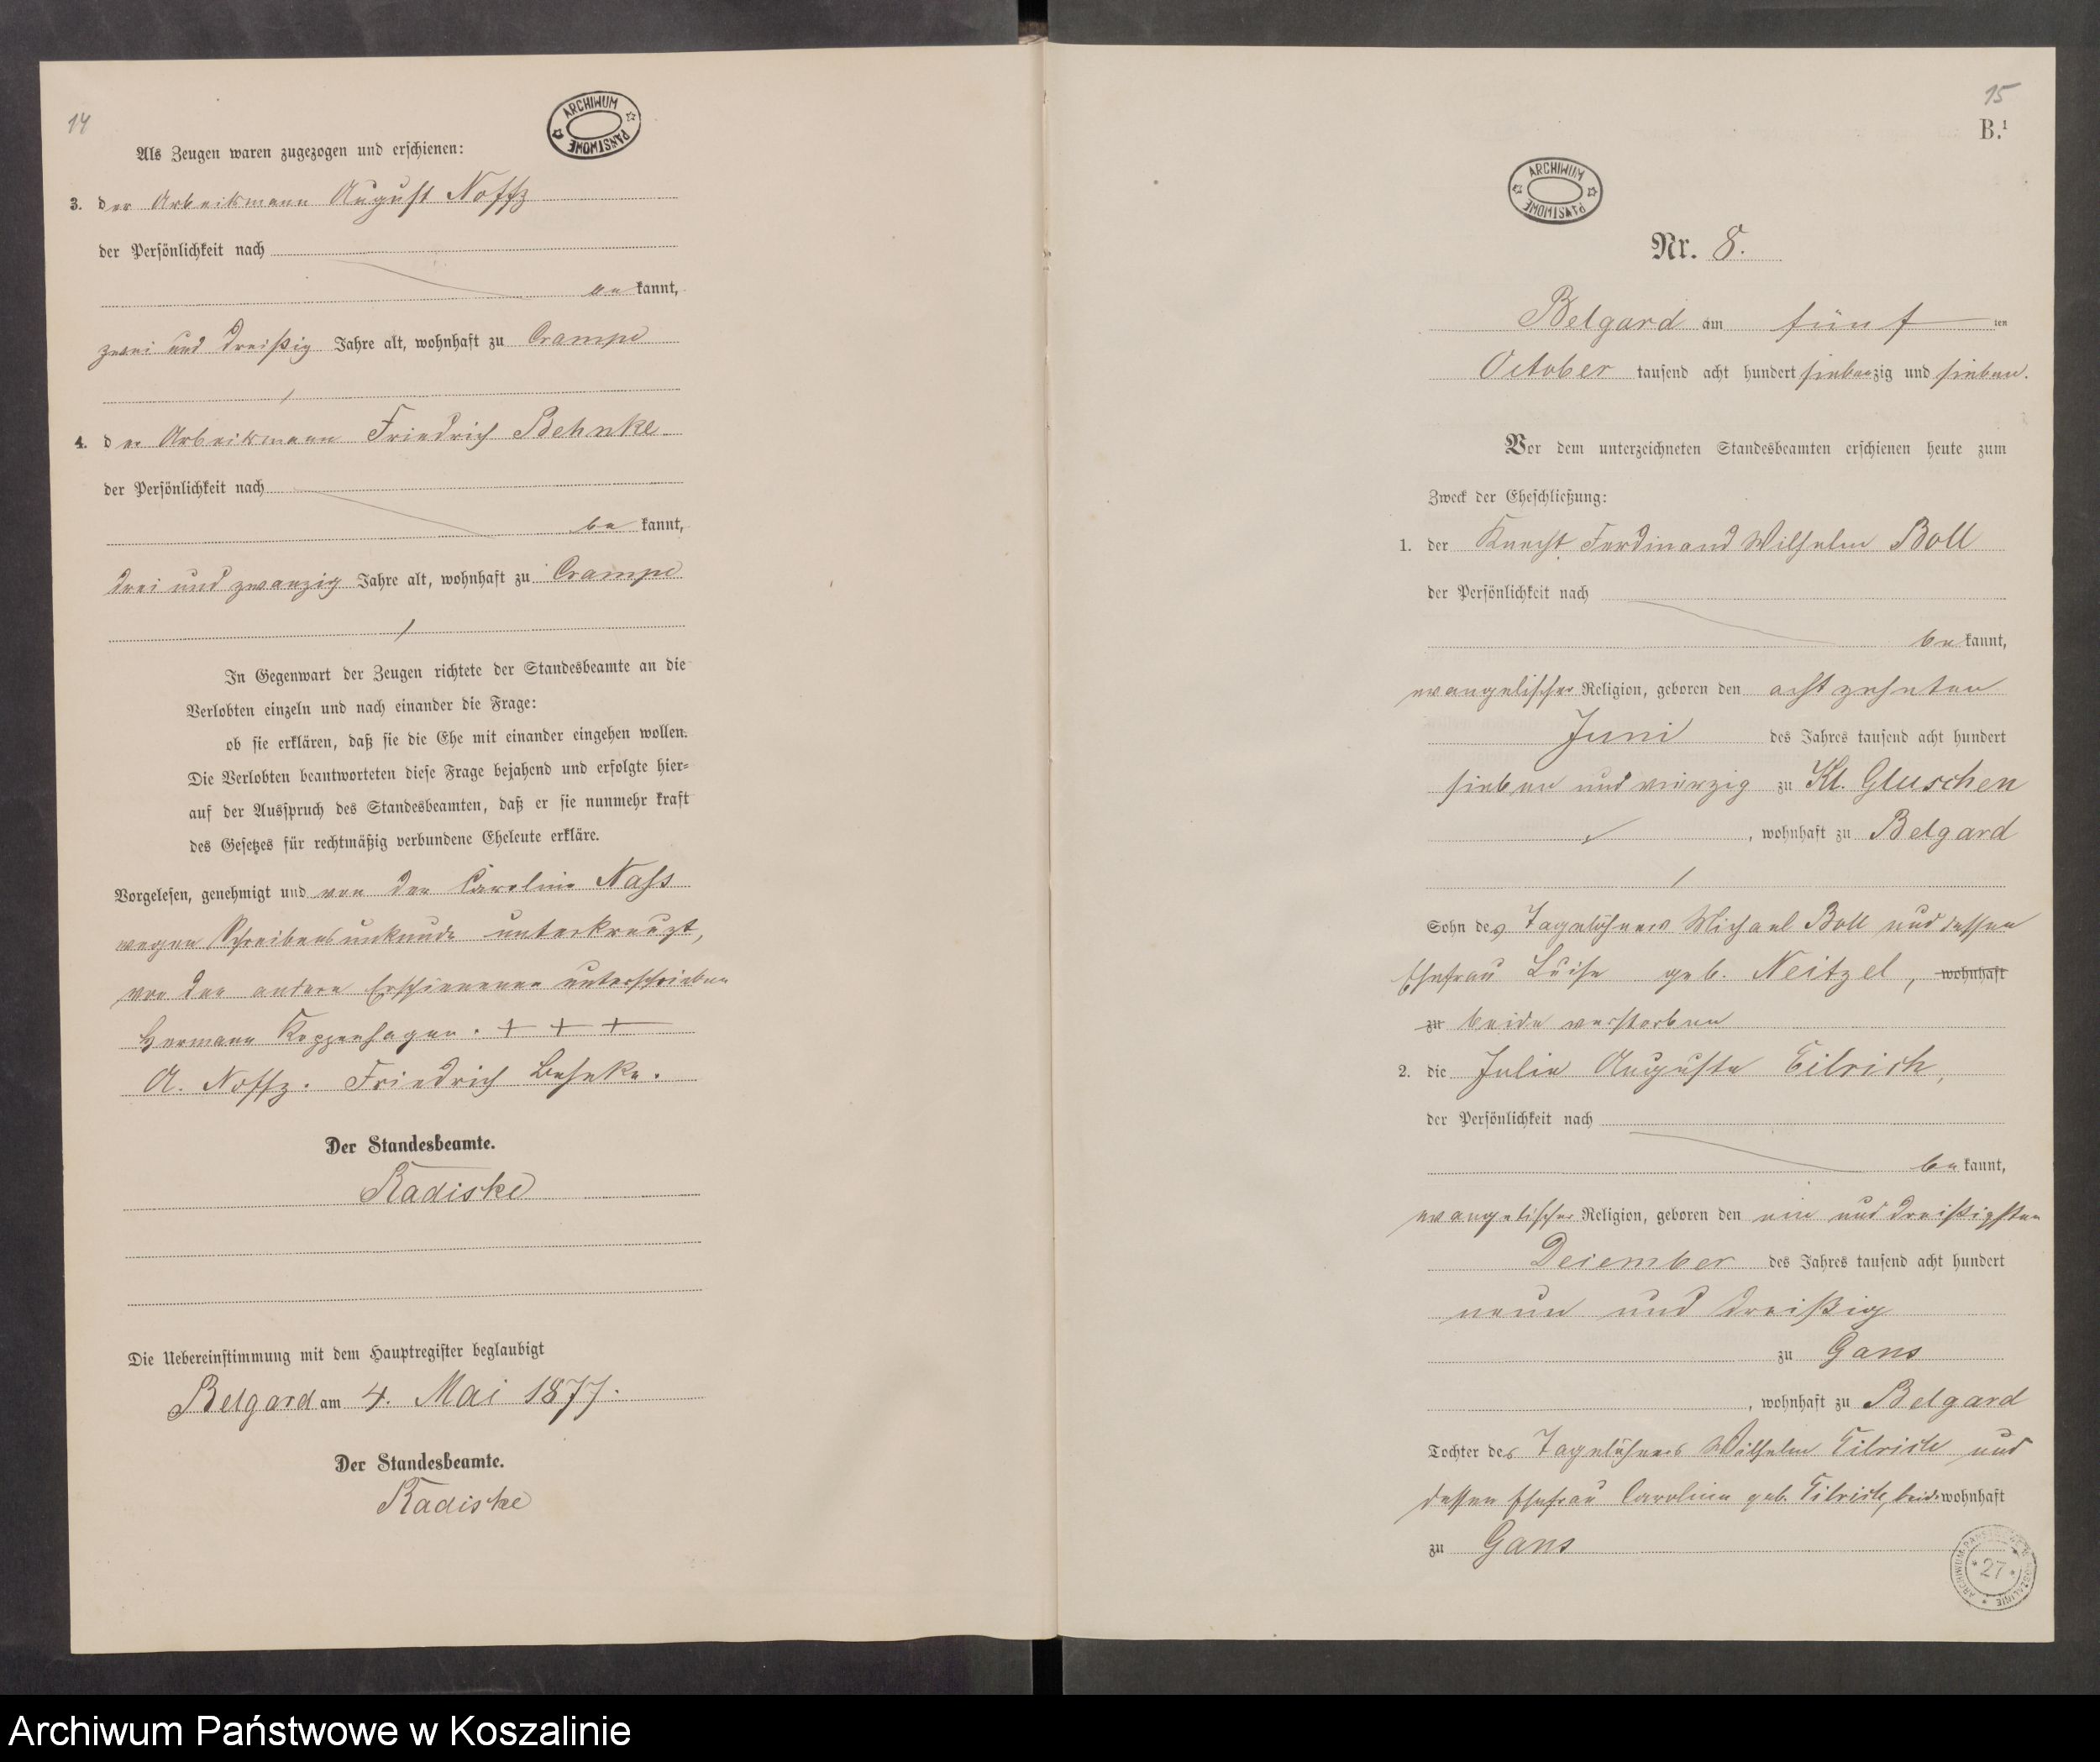 14
ARCHIWUM PAŃSTWOWE
Als Zeugen waren zugezogen und erschienen:
3. der Arbeitsmann August Noffz
der Persönlichkeit nach
be kannt,
zwei und dreißig Jahre alt, wohnhaft zu Crampe
4. der Arbeitsmann Friedrich Behnke
der Persönlichkeit nach
be kannt,
drei und zwanzig Jahre alt, wohnhaft zu Crampe
In Gegenwart der Zeugen richtete der Standesbeamte an die
Verlobten einzeln und nach einander die Frage:
ob sie erklären, daß sie die Ehe mit einander eingehen wollen.
Die Verlobten beantworteten diese Frage bejahend und erfolgte hier-
auf der Ausspruch des Standesbeamten, daß er sie nunmehr kraft
des Gesetzes für rechtmäßig verbundene Eheleute erkläre.
Vorgelesen, genehmigt und von der Caroline Nass
wegen Schreibensunkunde unterkreuzt,
von den andern Erschienenen unterschrieben
Hermann Koppenhagen. + + +
A. Noffz. Friedrich Behnke.
Der Standesbeamte.
Radiske
Die Uebereinstimmung mit dem Hauptregister beglaubigt
Belgard am 4. Mai 1877.
Der Standesbeamte.
Radiske
15
B.¹
ARCHIWUM PAŃSTWOWE
Nr. 8.
Belgard am fünf ten
October tausend acht hundert siebenzig und sieben.
Vor dem unterzeichneten Standesbeamten erschienen heute zum
Zweck der Eheschließung:
1. der Knecht Ferdinand Wilhelm Boll
der Persönlichkeit nach
be kannt,
evangelischer Religion, geboren den achtzehnten
Juni des Jahres tausend acht hundert
sieben und vierzig zu Kl. Gluschen
, wohnhaft zu Belgard
Sohn des Tagelöhners Michael Boll und dessen
Ehefrau Luise geb. Neitzel, wohnhaft
zu beide verstorben
2. die Julie Auguste Tilrich,
der Persönlichkeit nach
be kannt,
evangelischer Religion, geboren den ein und dreißigsten
Decembe​r des Jahres tausend acht hundert
neun und dreißig
zu Gans
, wohnhaft zu Belgard
Tochter des Tagelöhners Wilhelm Tilrich und
dessen Ehefrau Caroline geb. Tilrich, beide wohnhaft
zu Gans
ARCHIWUM PAŃSTWOWE W KOSZALINIE
27
Archiwum Państwowe w Koszalinie